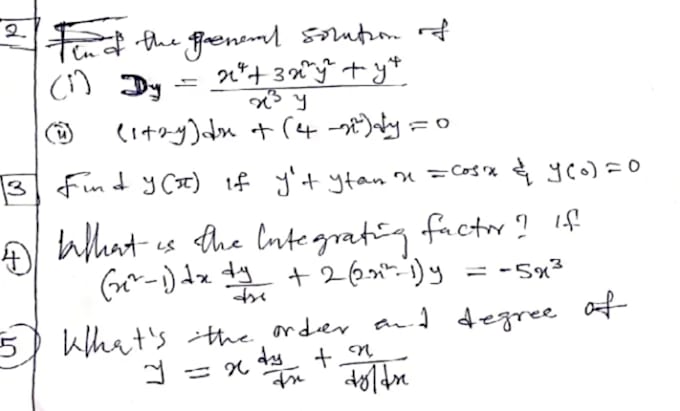 2 Find the general solution of
(i) Dy = x⁴ + 3x²y² + y⁴ / x³ y
(ii) (1+2y)dx + (4 - x²)dy = 0
3 Find y(π) if y' + y tan x = cos x & y(0) = 0
4 What is the Integrating factor? if
(x² - 1) dx dy/dx + 2(2x² - 1)y = -5x³
5 What's the order and degree of
y = x dy/dx + x / dy/dx